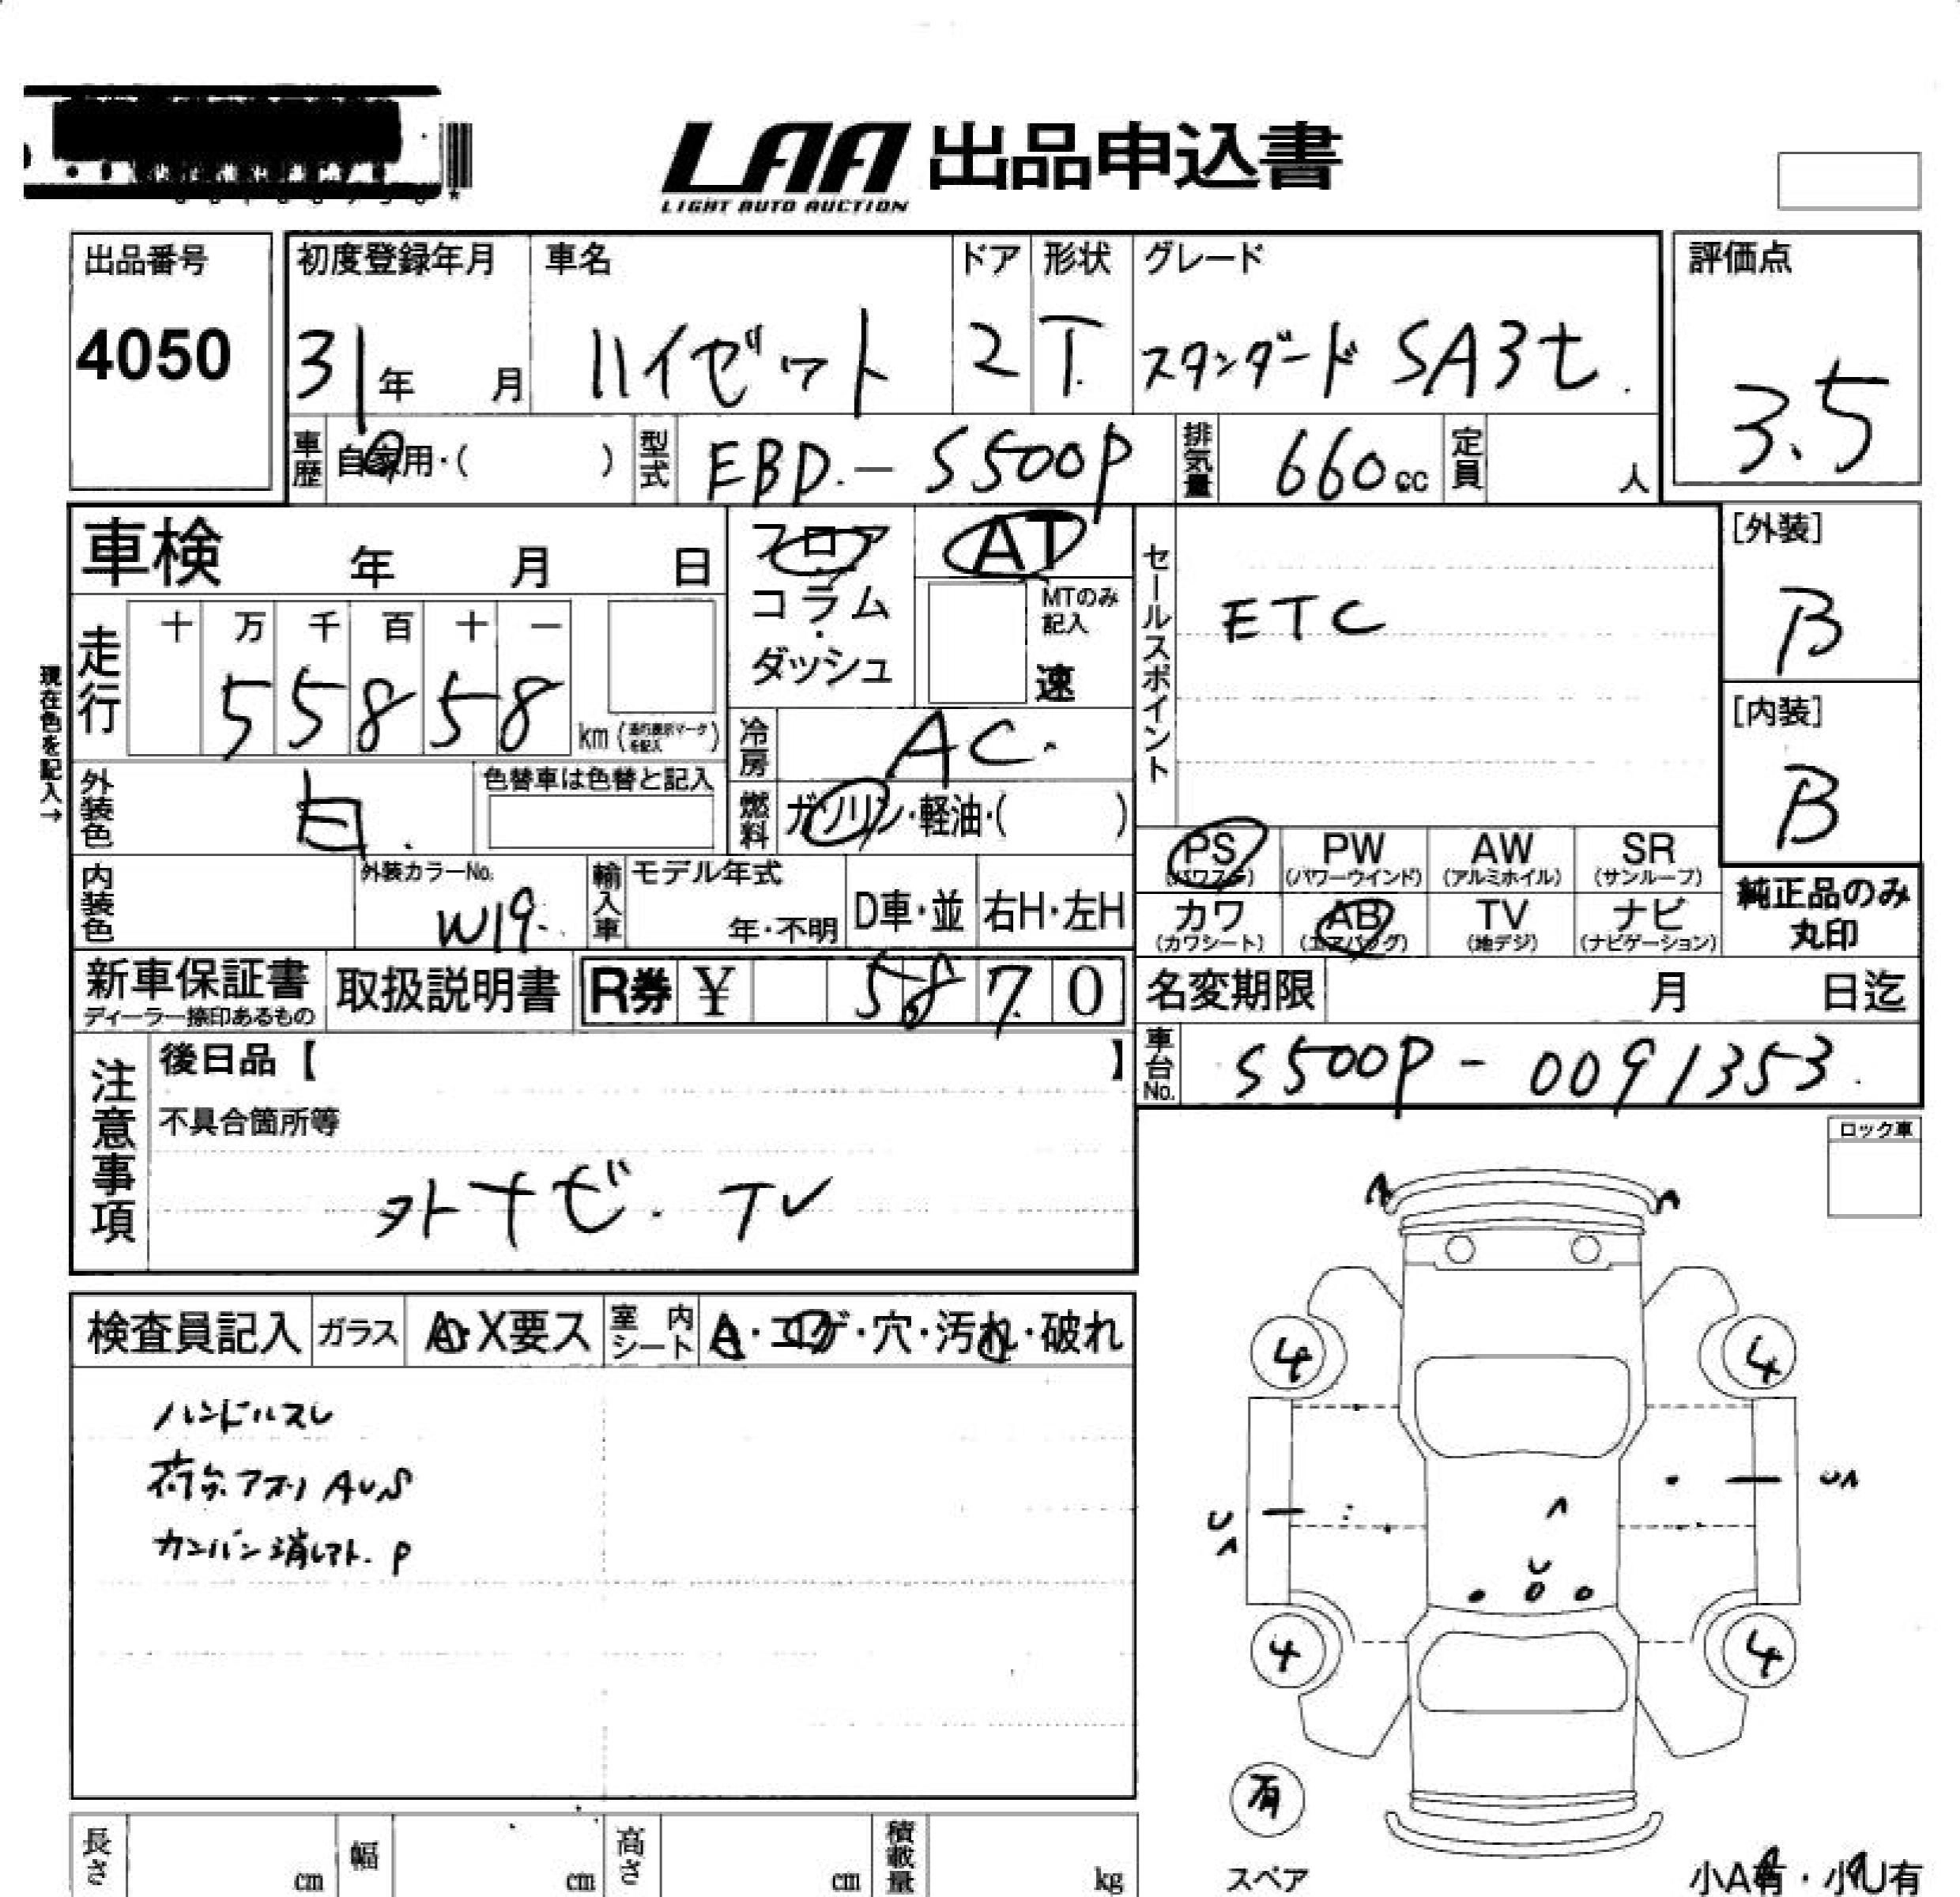 LAA 出品申込書
LIGHT AUTO AUCTION
出品番号
4050
初度登録年月
31年 月
車名
ハイゼット
ドア
2
形状
T
グレード
スタンダード SA3t
評価点
3.5
車歴 自家用・( )
型式 EBD-S500P
排気量 660cc
定員 人
車検 年 月 日
フロア
コラム
・
ダッシュ
AT
MTのみ
記入
速
セールスポイント
ETC
[外装]
B
[内装]
B
現在色を記入→
走行
十 万 千 百 十 一
55858
km
冷房 AC
外装色 白
色替車は色替と記入
燃料 ガソリン・軽油・( )
内装色
外装カラーNo.
W19
輸入車
モデル年式
年・不明
D車・並
右H・左H
PS (パワステ)
PW (パワーウインド)
AW (アルミホイル)
SR (サンルーフ)
カワ (カワシート)
AB (エアバッグ)
TV (地デジ)
ナビ (ナビゲーション)
純正品のみ
丸印
新車保証書
ディーラー捺印あるもの
取扱説明書
R券 ¥ 5870
名変期限 月 日迄
車台No. S500P-0091353
注意事項
後日品【 】
不具合箇所等
外ナビ. TV
ロック車
検査員記入
ガラス
A・X要ス
室内シート
A・コゲ・穴・汚れ・破れ
ハンドルスレ
荷台アオリ AUS
カンバン消しアト. P
A
4
4
UA
U
4
4
有
スペア
小A有・小U有
長さ cm
幅 cm
高さ cm
積載量 kg